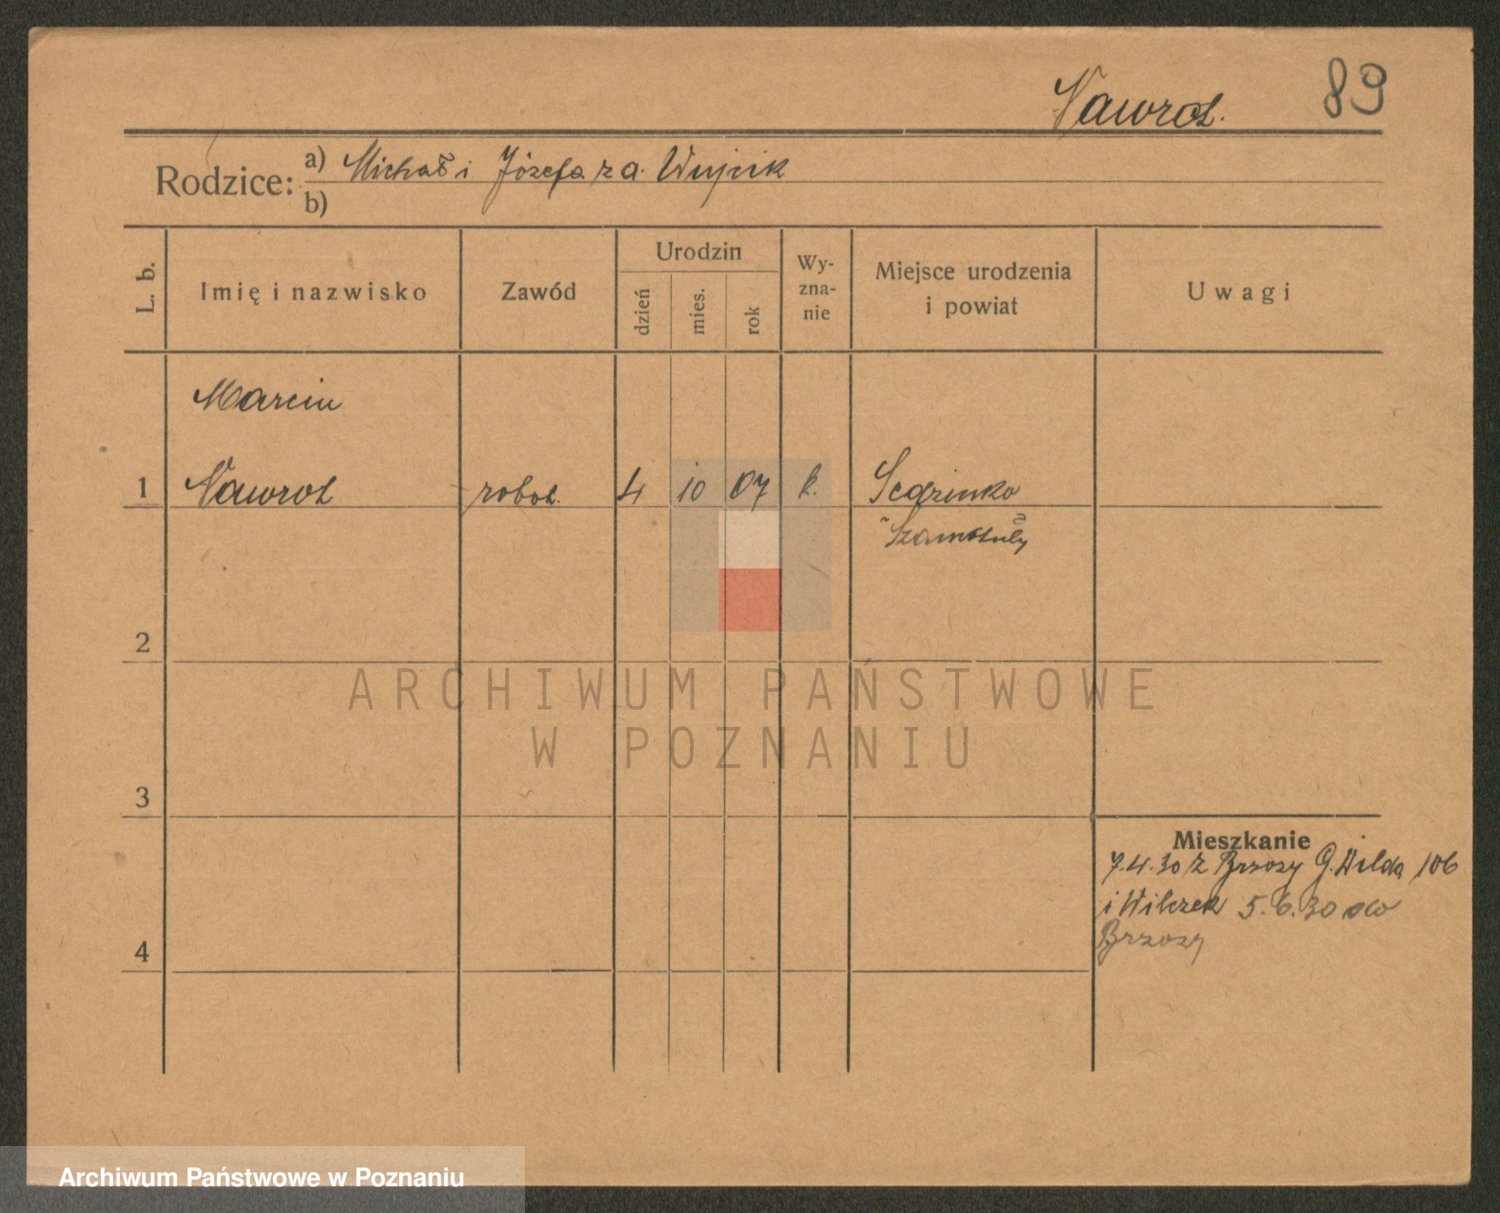 Nawrot. 89
Rodzice: a) Michał i Józefa z d. Wujcik
b)
L. b. Imię i nazwisko Zawód Urodzin dzień mies. rok Wy-zna-nie Miejsce urodzenia i powiat Uwagi
Marcin
1 Nawrot robot. 4 10 07 k.
Szamotuły
2
ARCHIWUM PAŃSTWOWE
W POZNANIU
3
Mieszkanie
7.4.30 z Brzozy G. Wilda 106
i Wilczek 5.6.30
4 Brzozy
Archiwum Państwowe w Poznaniu